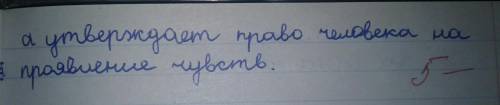 а утверждает право человека на
проявление чувств.
5 —